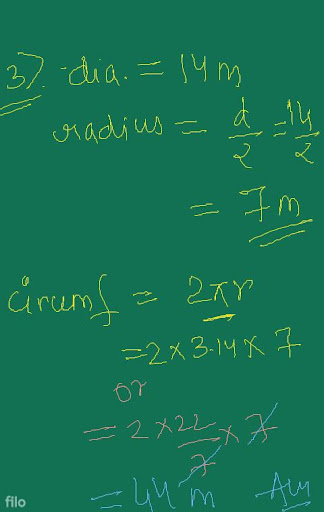 3). dia. = 14 m
radius = d/2 = 14/2
= 7 m
Circumf = 2πr
= 2 × 3.14 × 7
or
= 2 × 22/7 × 7
= 44 m Ans
filo